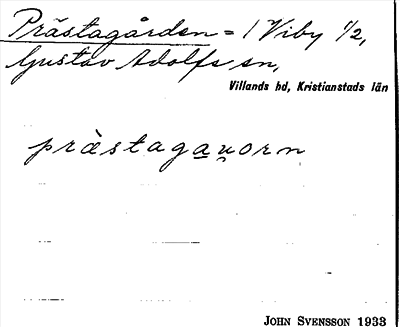 Prästagården = 1 Viby 1/2,
Gustav Adolfs sn,
Villands hd, Kristianstads län
prästagau̯orn
JOHN SVENSSON 1933